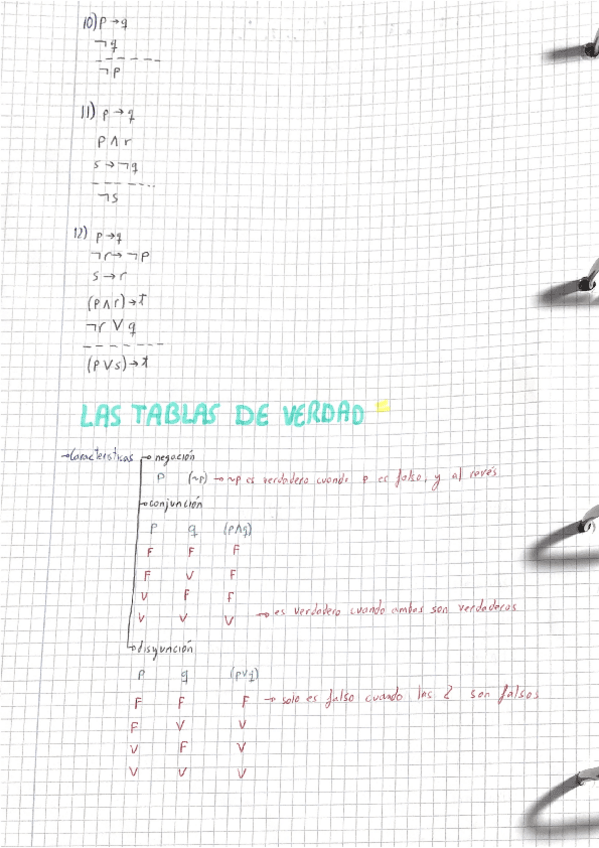 10) p → q
¬q
- - - - - -
¬p
11) p → q
p ∧ r
s → ¬q
- - - - - -
¬s
12) p → q
¬r → ¬p
s → r
(p ∧ r) → t
¬r ∨ q
- - - - - - -
(p ∨ s) → t
LAS TABLAS DE VERDAD
→ Características → negación
p (~p) → ~p es verdadero cuando p es falso, y al revés
→ conjunción
p q (p∧q)
F F F
F V F
V F F
V V V → es verdadero cuando ambas son verdaderas
→ disyunción
p q (p∨q)
F F F → solo es falso cuando las 2 son falsos
F V V
V F V
V V V